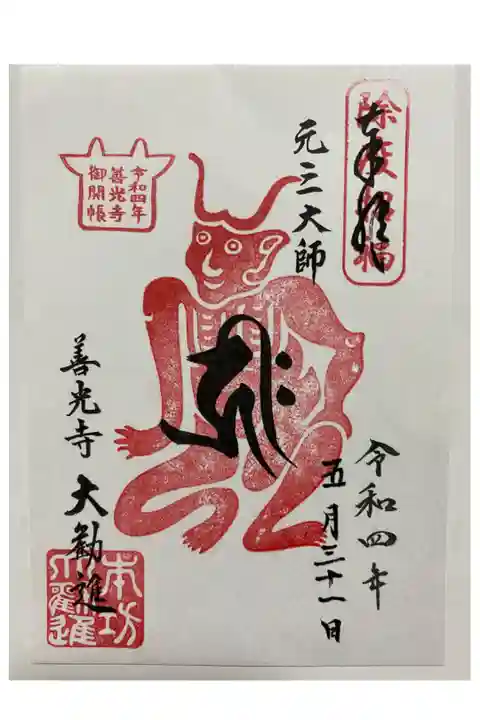 除災招福
奉拝
元三大師
令和四年
善光寺
御開帳
令和四年
五月三十一日
善光寺 大勧進